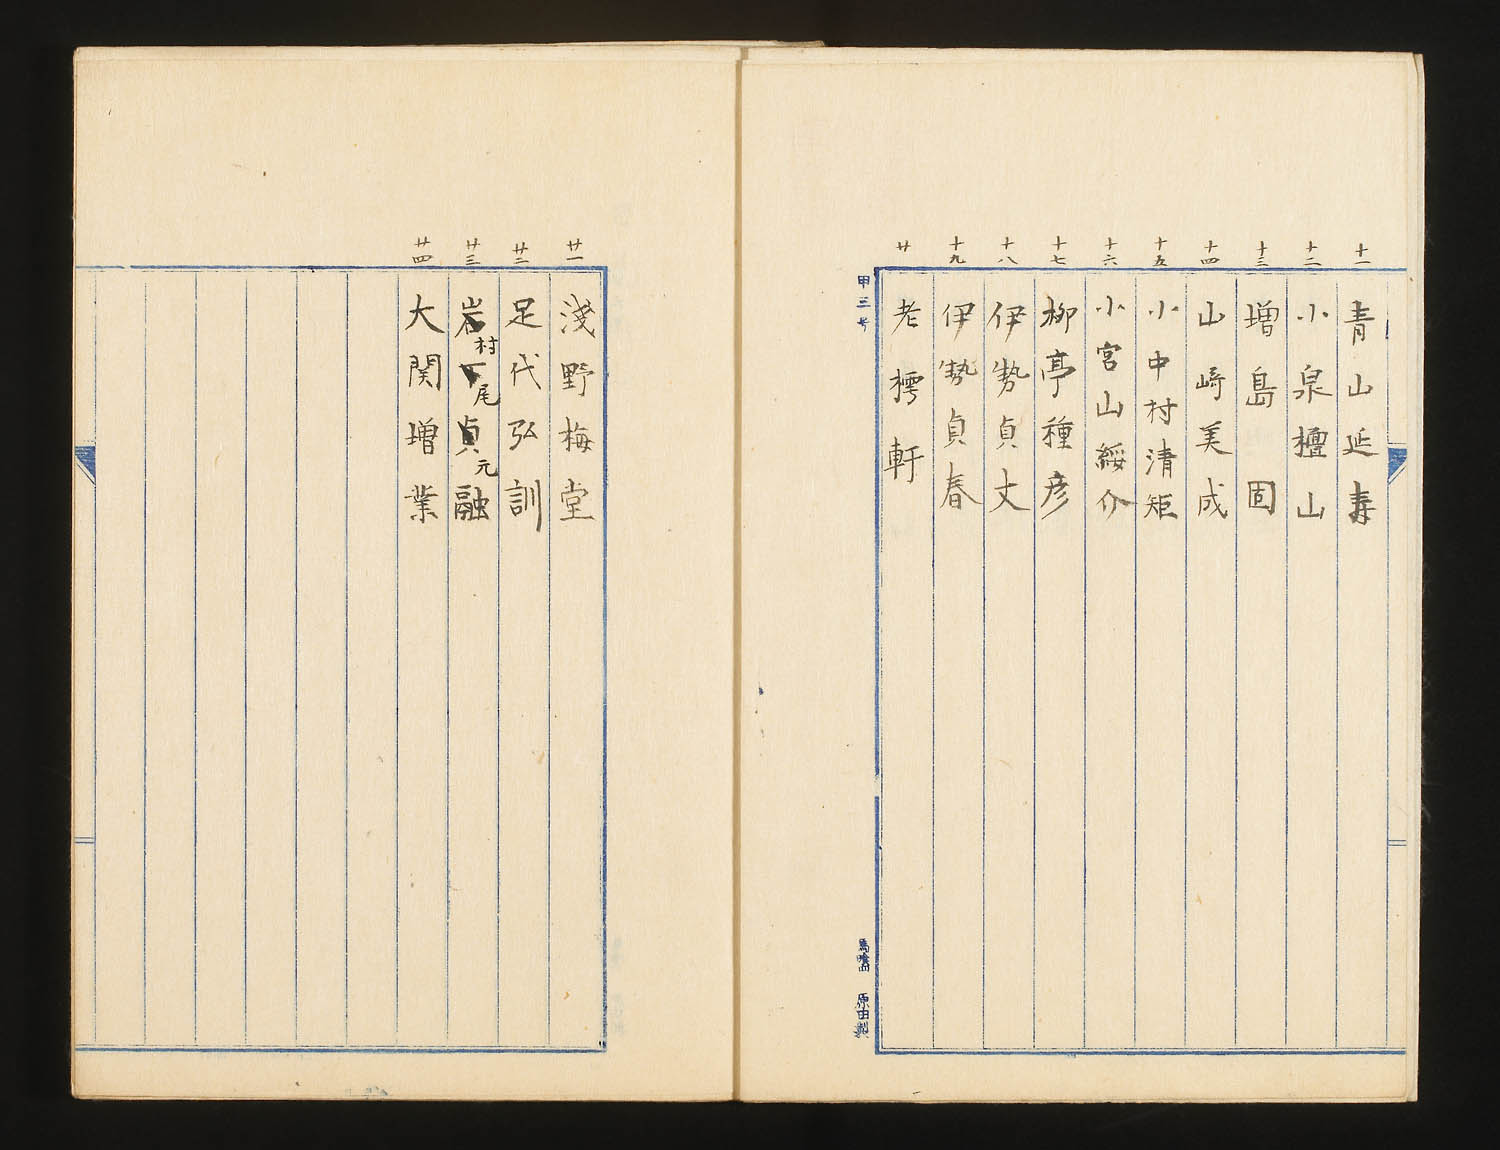 十一 青山延寿
十二 小泉檀山
十三 増島固
十四 山崎美成
十五 小中村清矩
十六 小宮山綏介
十七 柳亭種彦
十八 伊勢貞丈
十九 伊勢貞春
廿 老樗軒
甲三号
馬喰四 原田製
廿一 淺野梅堂
廿二 足代弘訓
廿三 岩下貞融
村尾元
廿四 大関増業